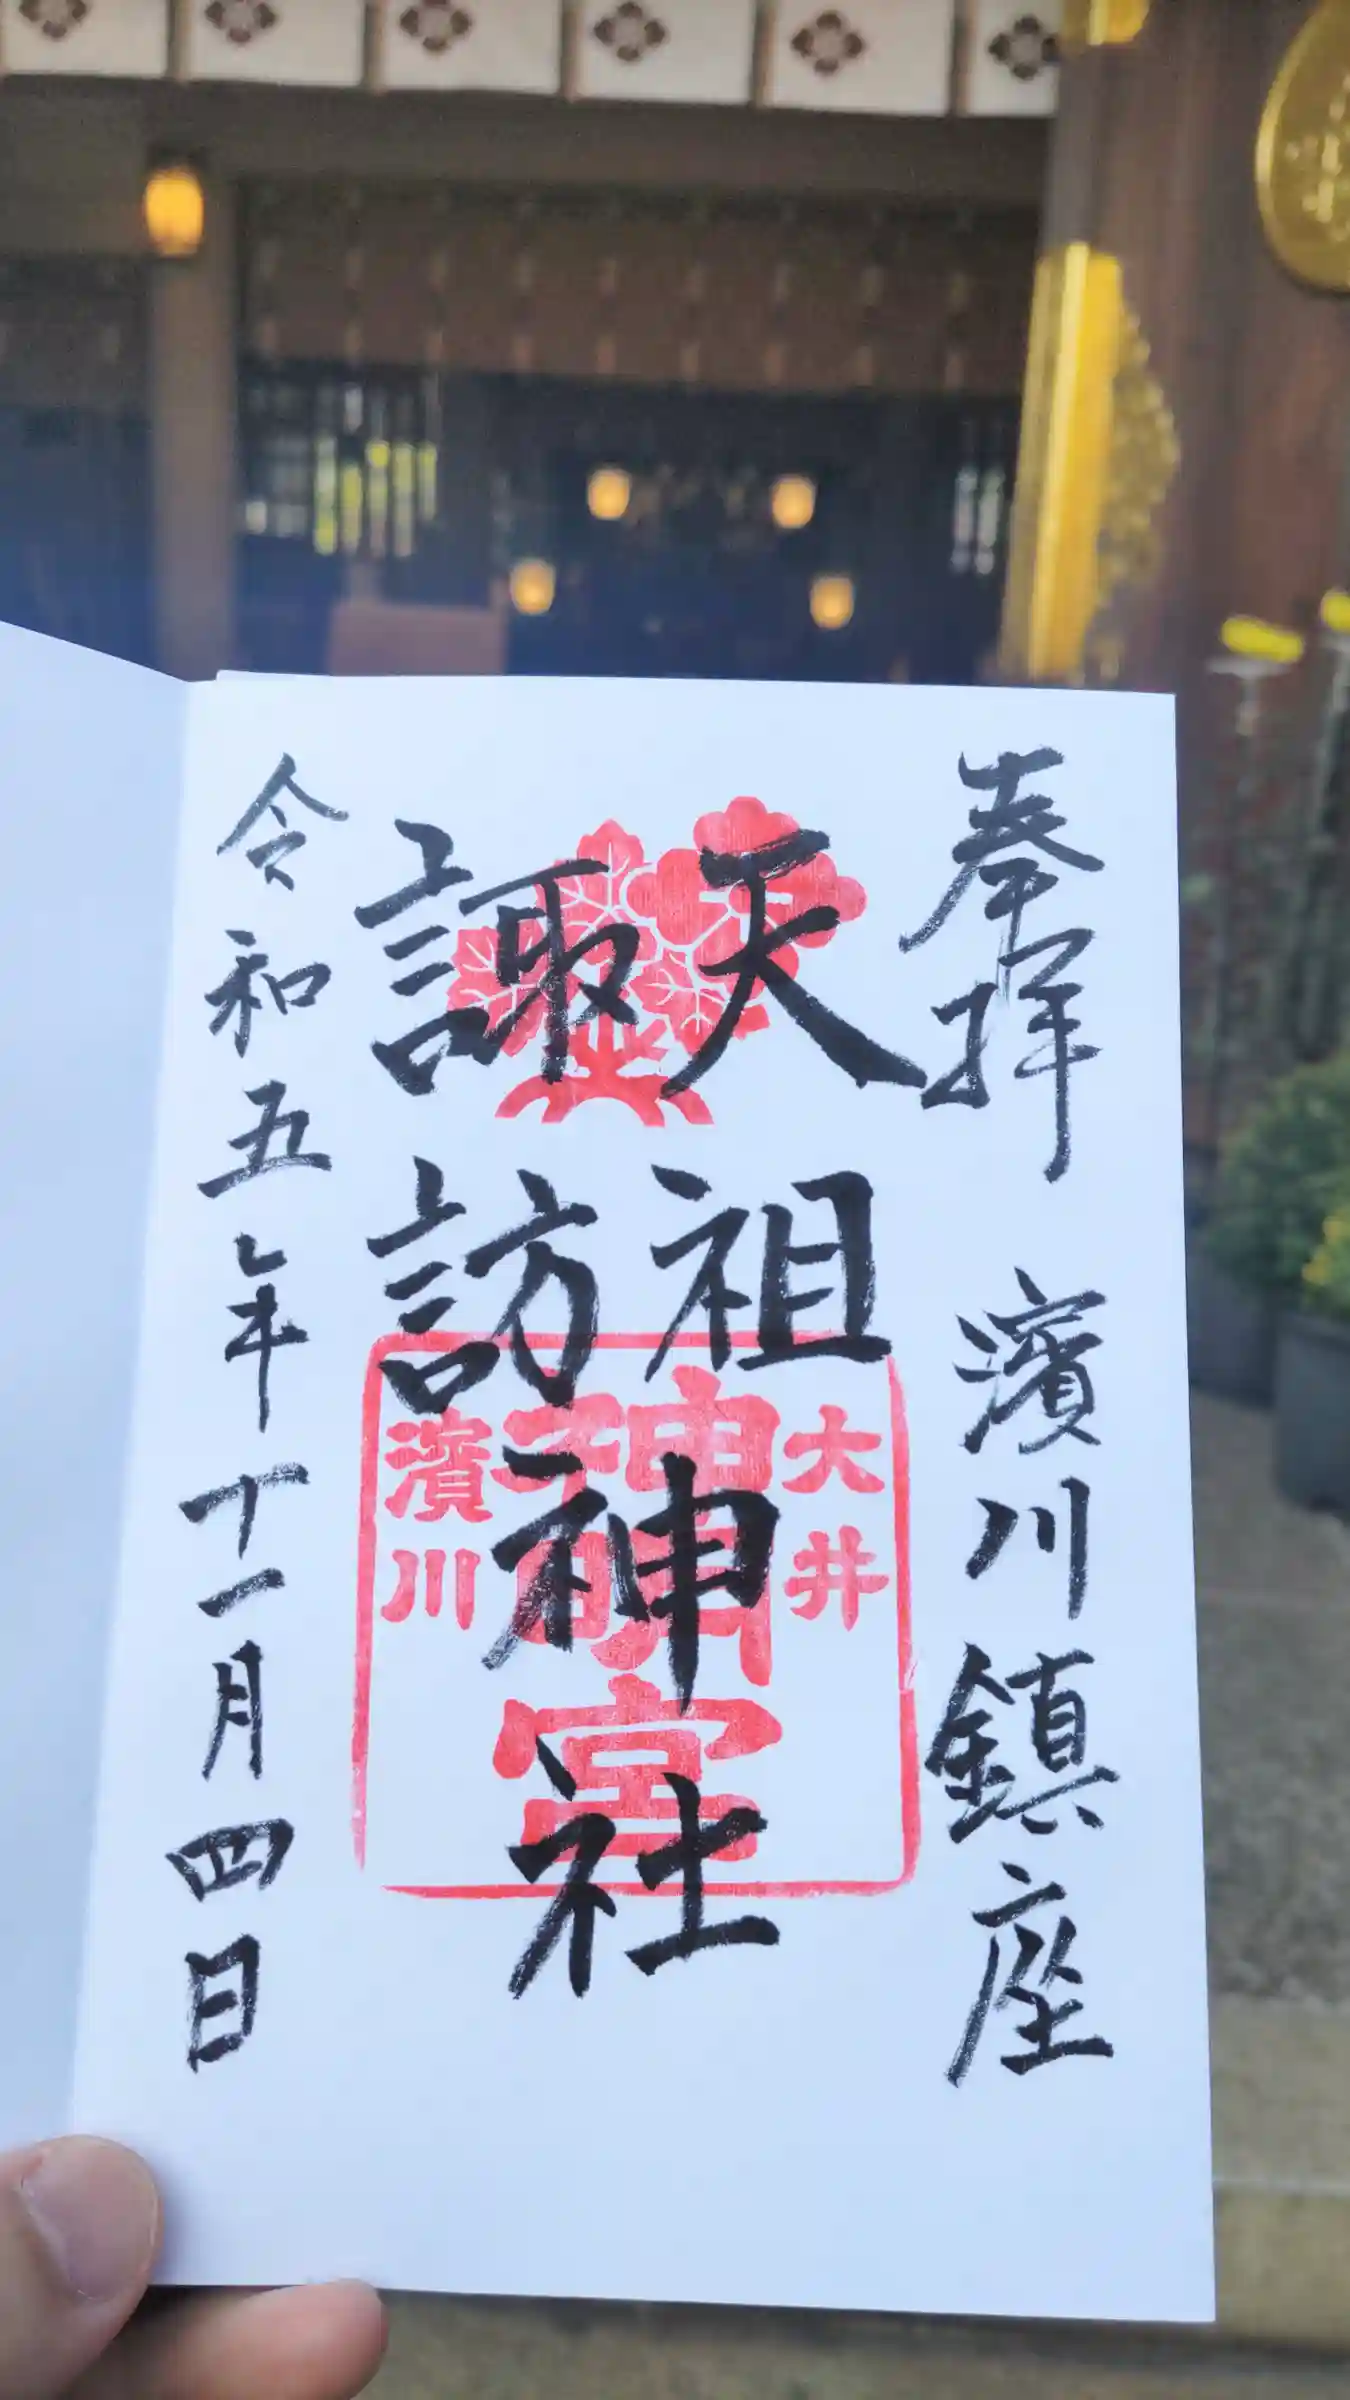 奉拝 濱川鎮座
天祖
諏訪
神社
大井
神明宮
濱川
令和五年十一月四日